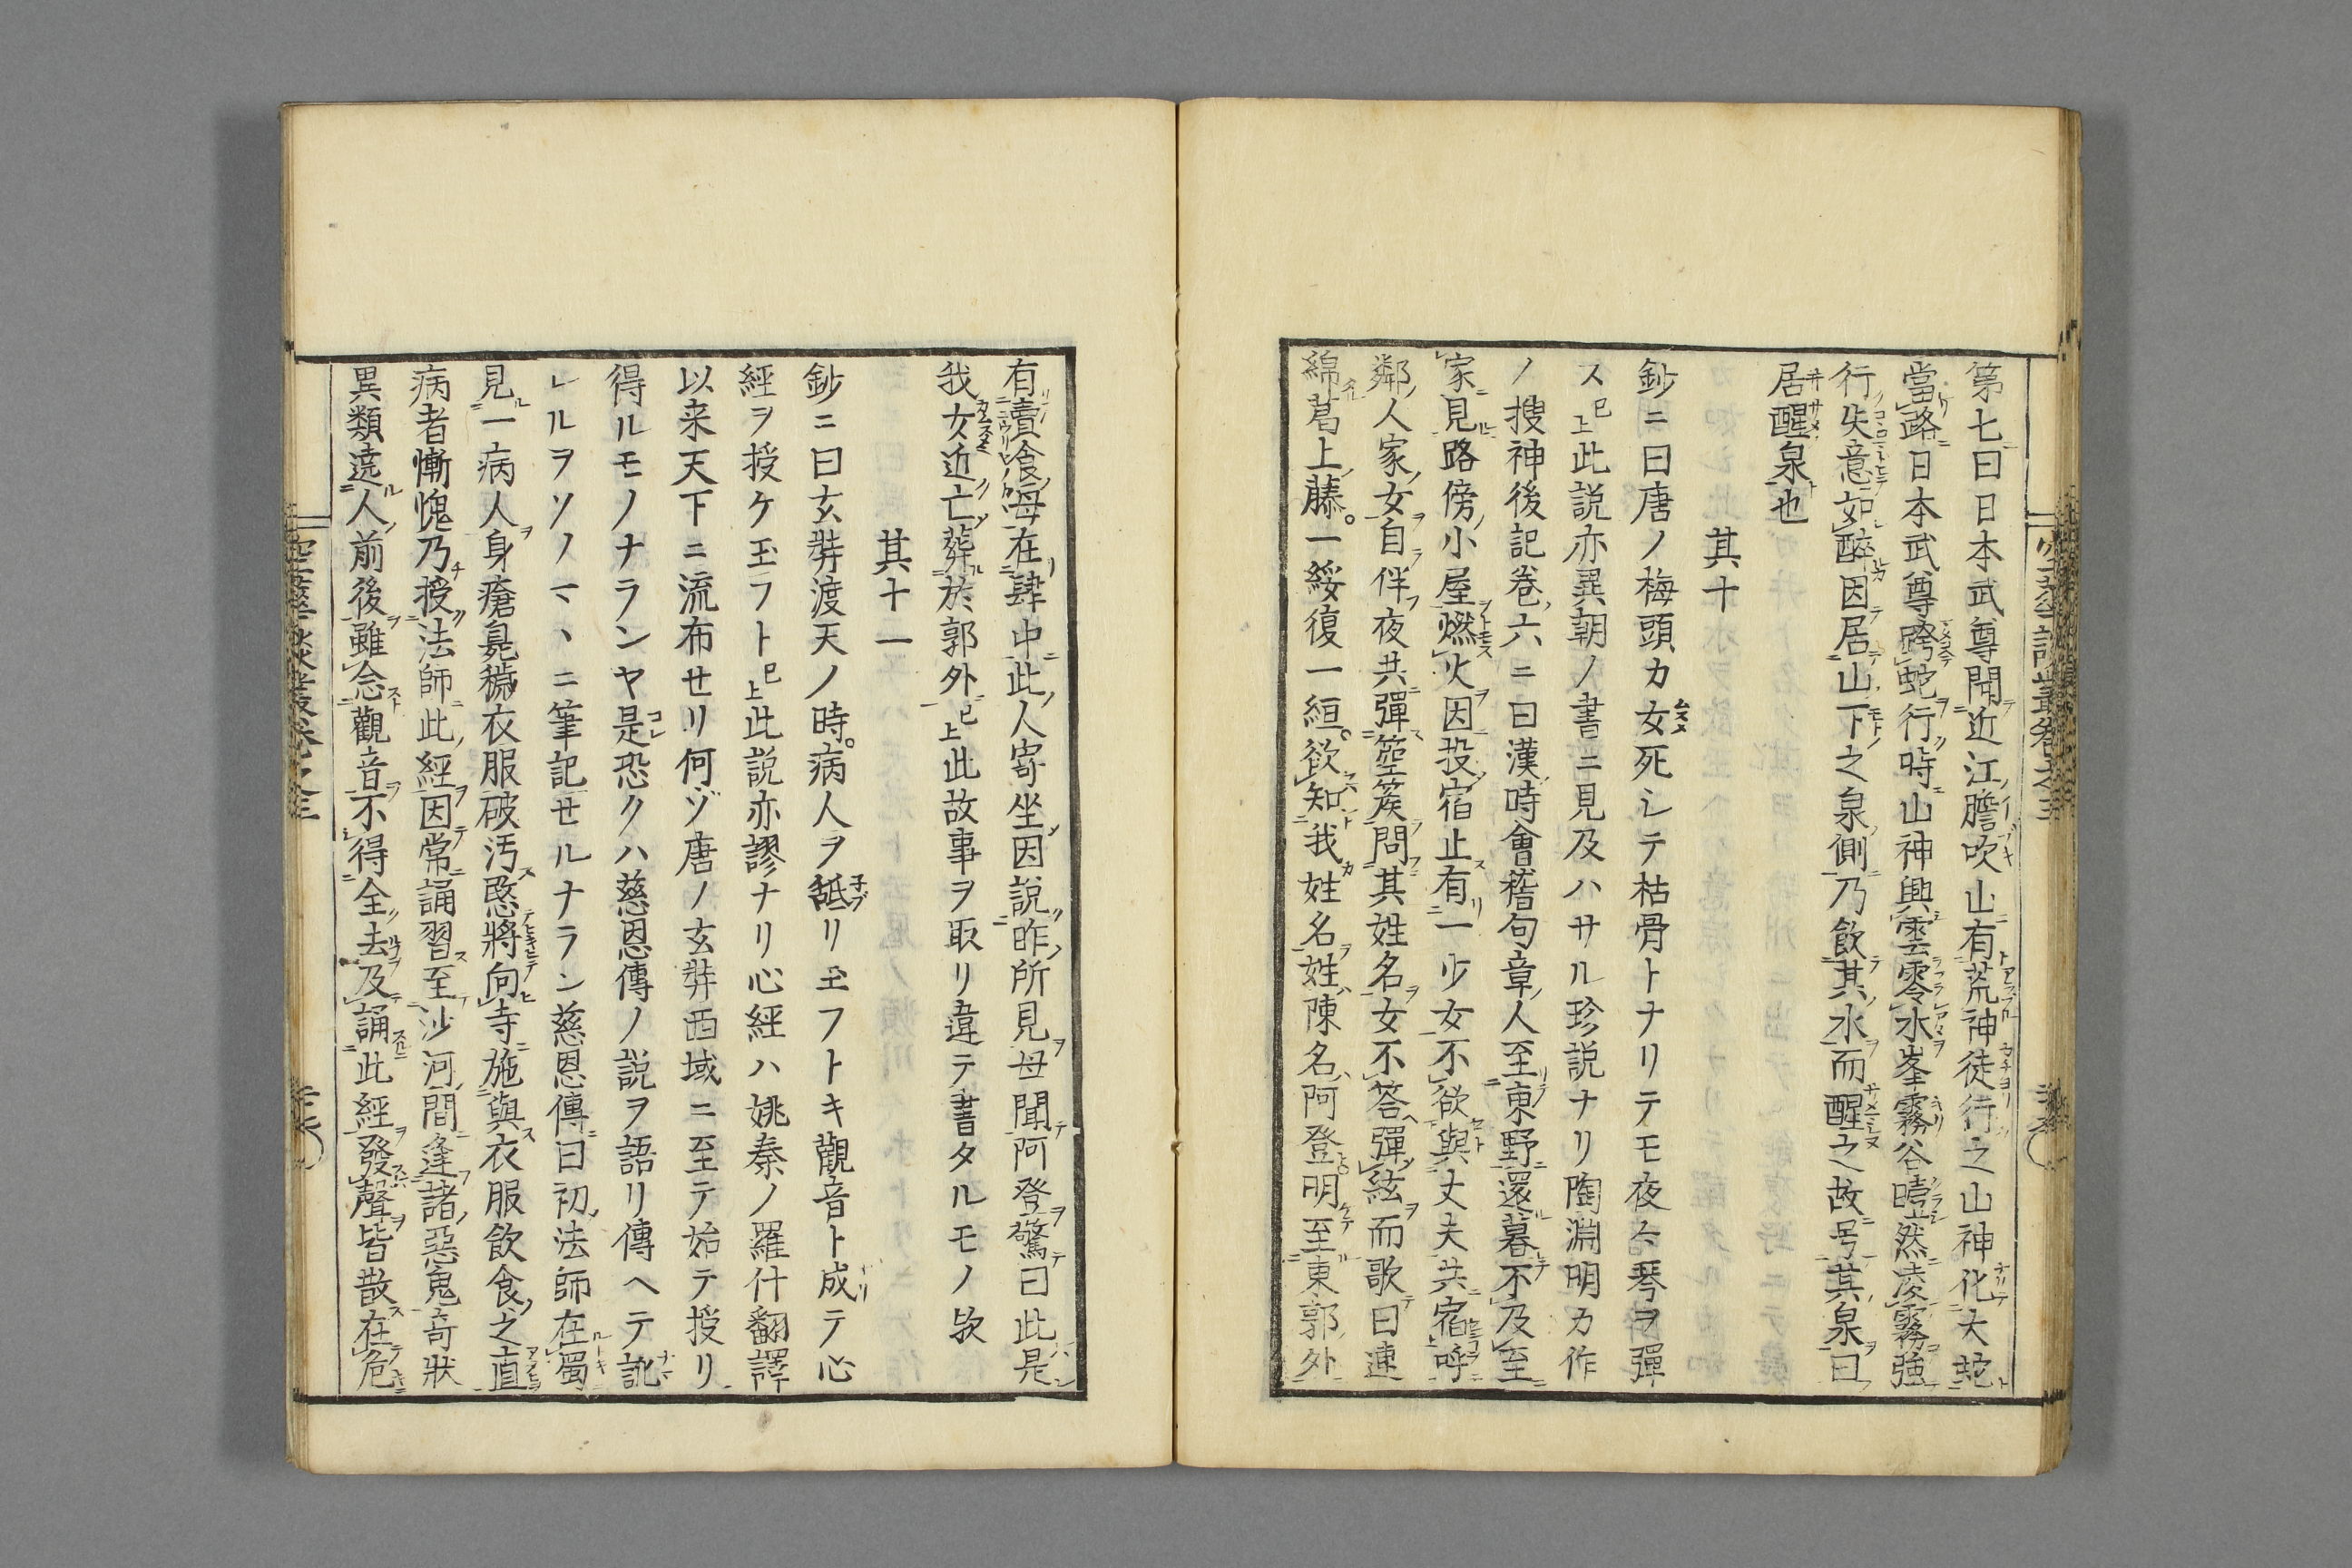 第七曰日本武尊聞近江膽吹山有荒神徒行之山神化大蛇
當路日本武尊跨蛇行時山神興雲零水峯霧谷曀然凌霧強
行失意如醉因居山下之泉側乃飲其水而醒之故号其泉曰
居醒泉也
其十
鈔ニ曰唐ノ梅頭カ女死シテ枯骨トナリテモ夜々琴ヲ彈
ス已上此説亦異朝ノ書ニ見及ハサル珍説ナリ陶淵明カ作
ノ搜神後記卷六ニ曰漢時會稽句章人至東野還暮不及至
家見路傍小屋燃火因投宿止有一少女不欲與丈夫共宿呼
鄰人家女自伴夜共彈箜篌問其姓名女不答彈絃而歌曰連
綿葛上藤。一綏復一絙。欲知我姓名姓陳名阿登明至東郭外
有賣食母在肆中此人寄坐因説昨所見母聞阿登驚曰此是
我女近亡葬於郭外已上此故事ヲ取リ違テ書タルモノ欤
其十一
鈔ニ曰玄弉渡天ノ時。病人ヲ舐リ玉フトキ觀音ト成テ心
經ヲ授ケ玉フト已上此説亦謬ナリ心經ハ姚秦ノ羅什翻譯
以来天下ニ流布セリ何ゾ唐ノ玄弉西域ニ至テ始テ授リ
得ルモノナランヤ是恐クハ慈恩傳ノ説ヲ語リ傳ヘテ訛
レルヲソノマヽニ筆記セルナラン慈恩傳曰初法師在蜀
見一病人身瘡臭穢衣服破汚愍將向寺施與衣服飲食之直
病者慚愧乃授法師此經因常誦習至沙河間逢諸惡鬼奇狀
異類遶人前後雖念觀音不得全去及誦此經發聲皆散在危